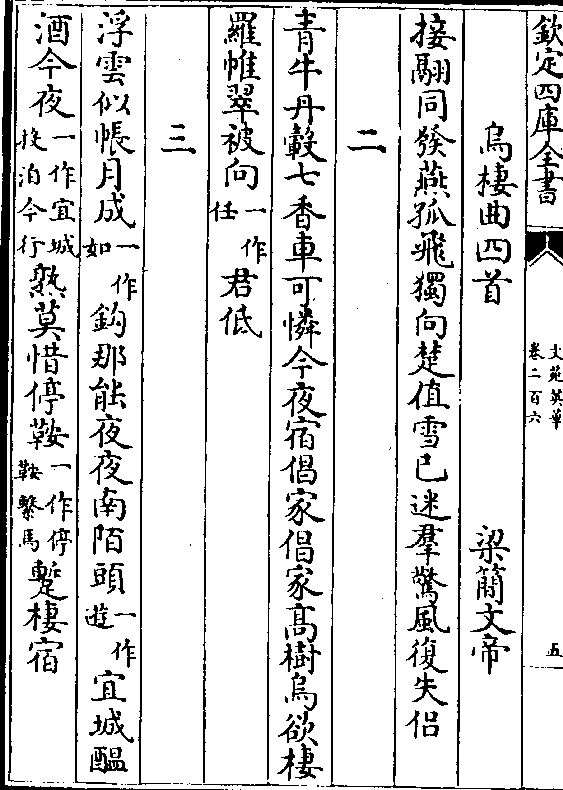 欽定四庫全書
文苑英華
卷二百六
五
烏棲曲四首 梁簡文帝
接翮同發燕孤飛獨向楚值雪已迷羣驚風復失侣
二
青牛丹轂七香車可憐今夜宿倡家倡家髙樹烏欲棲
羅帷翠被向一作任君低
三
浮雲似帳月成一作如鈎那能夜夜南陌頭一作遊宜城醖
酒今夜一作宜城投泊今行熟莫惜停鞍一作停鞍繫馬蹔棲宿